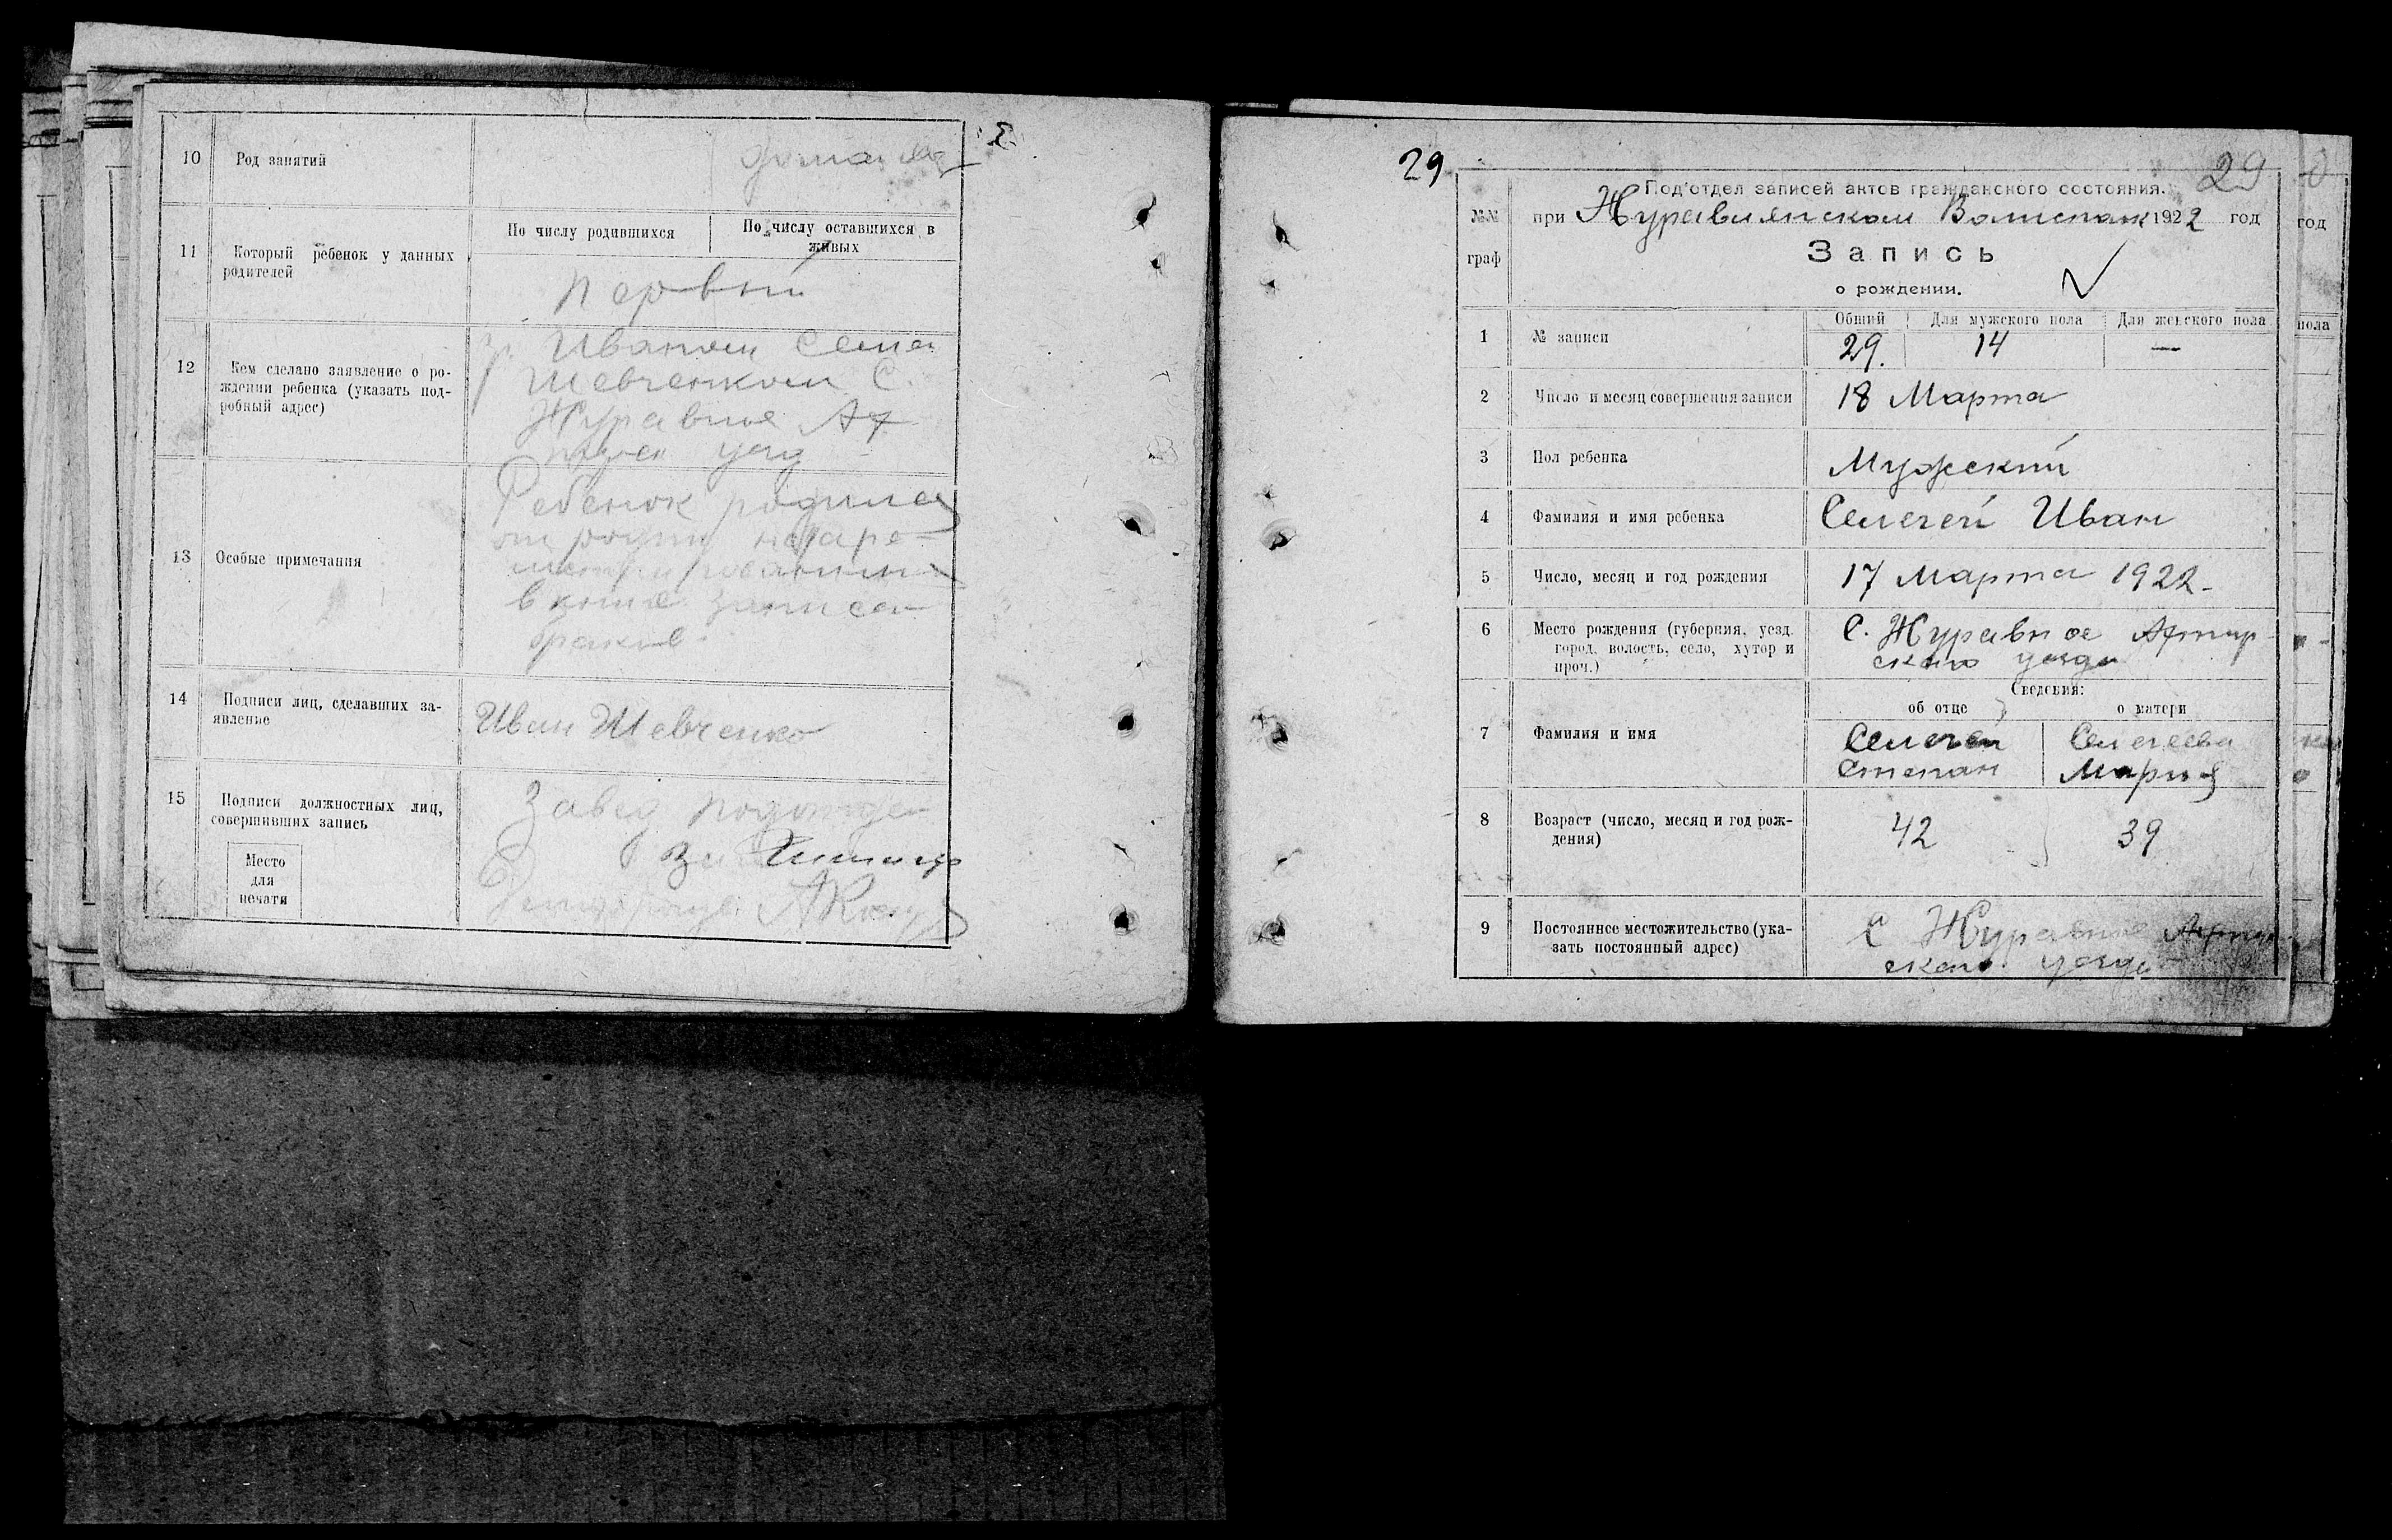 10 Род занятий
11 Который ребенок у данных родителей
По числу родившихся
По числу оставшихся в живых
первый
12 Кем сделано заявление о ро-
ждении ребенка (указать под-
робный адрес)
гр. Иваном Семен
Шевченком С.
Журавное Ах
уезд
13 Особые примечания
Ребенок родился
от родит незаре-
гистрированных
в книге записи
браков
14 Подписи лиц, сделавших за-
явление
Иван Шевченко
15 Подписи должностных лиц,
совершивших запись
Завед подотдел
за
Место
для
печати
29
29
Под'отдел записей актов гражданского состояния.
№№
граф
при Журавлянском Волисполк 1922 год
Запись
о рождении.
1 № записи
Общий Для мужского пола Для женского пола
29. 14 —
2 Число и месяц совершения записи 18 Марта
3 Пол ребенка Мужский
4 Фамилия и имя ребенка Селегей Иван
5 Число, месяц и год рождения 17 Марта 1922
6 Место рождения (губерния, уезд,
город, волость, село, хутор и
проч.)
С. Журавное Ахтыр-
скаго уезда
Сведения:
об отце о матери
7 Фамилия и имя
Селегей Селегеева
Степан Мария
8 Возраст (число, месяц и год рож-
дения)
42 39
9 Постоянное местожительство (ука-
зать постоянный адрес)
С Журавное Ахтыр
скаго уезда
год
пола